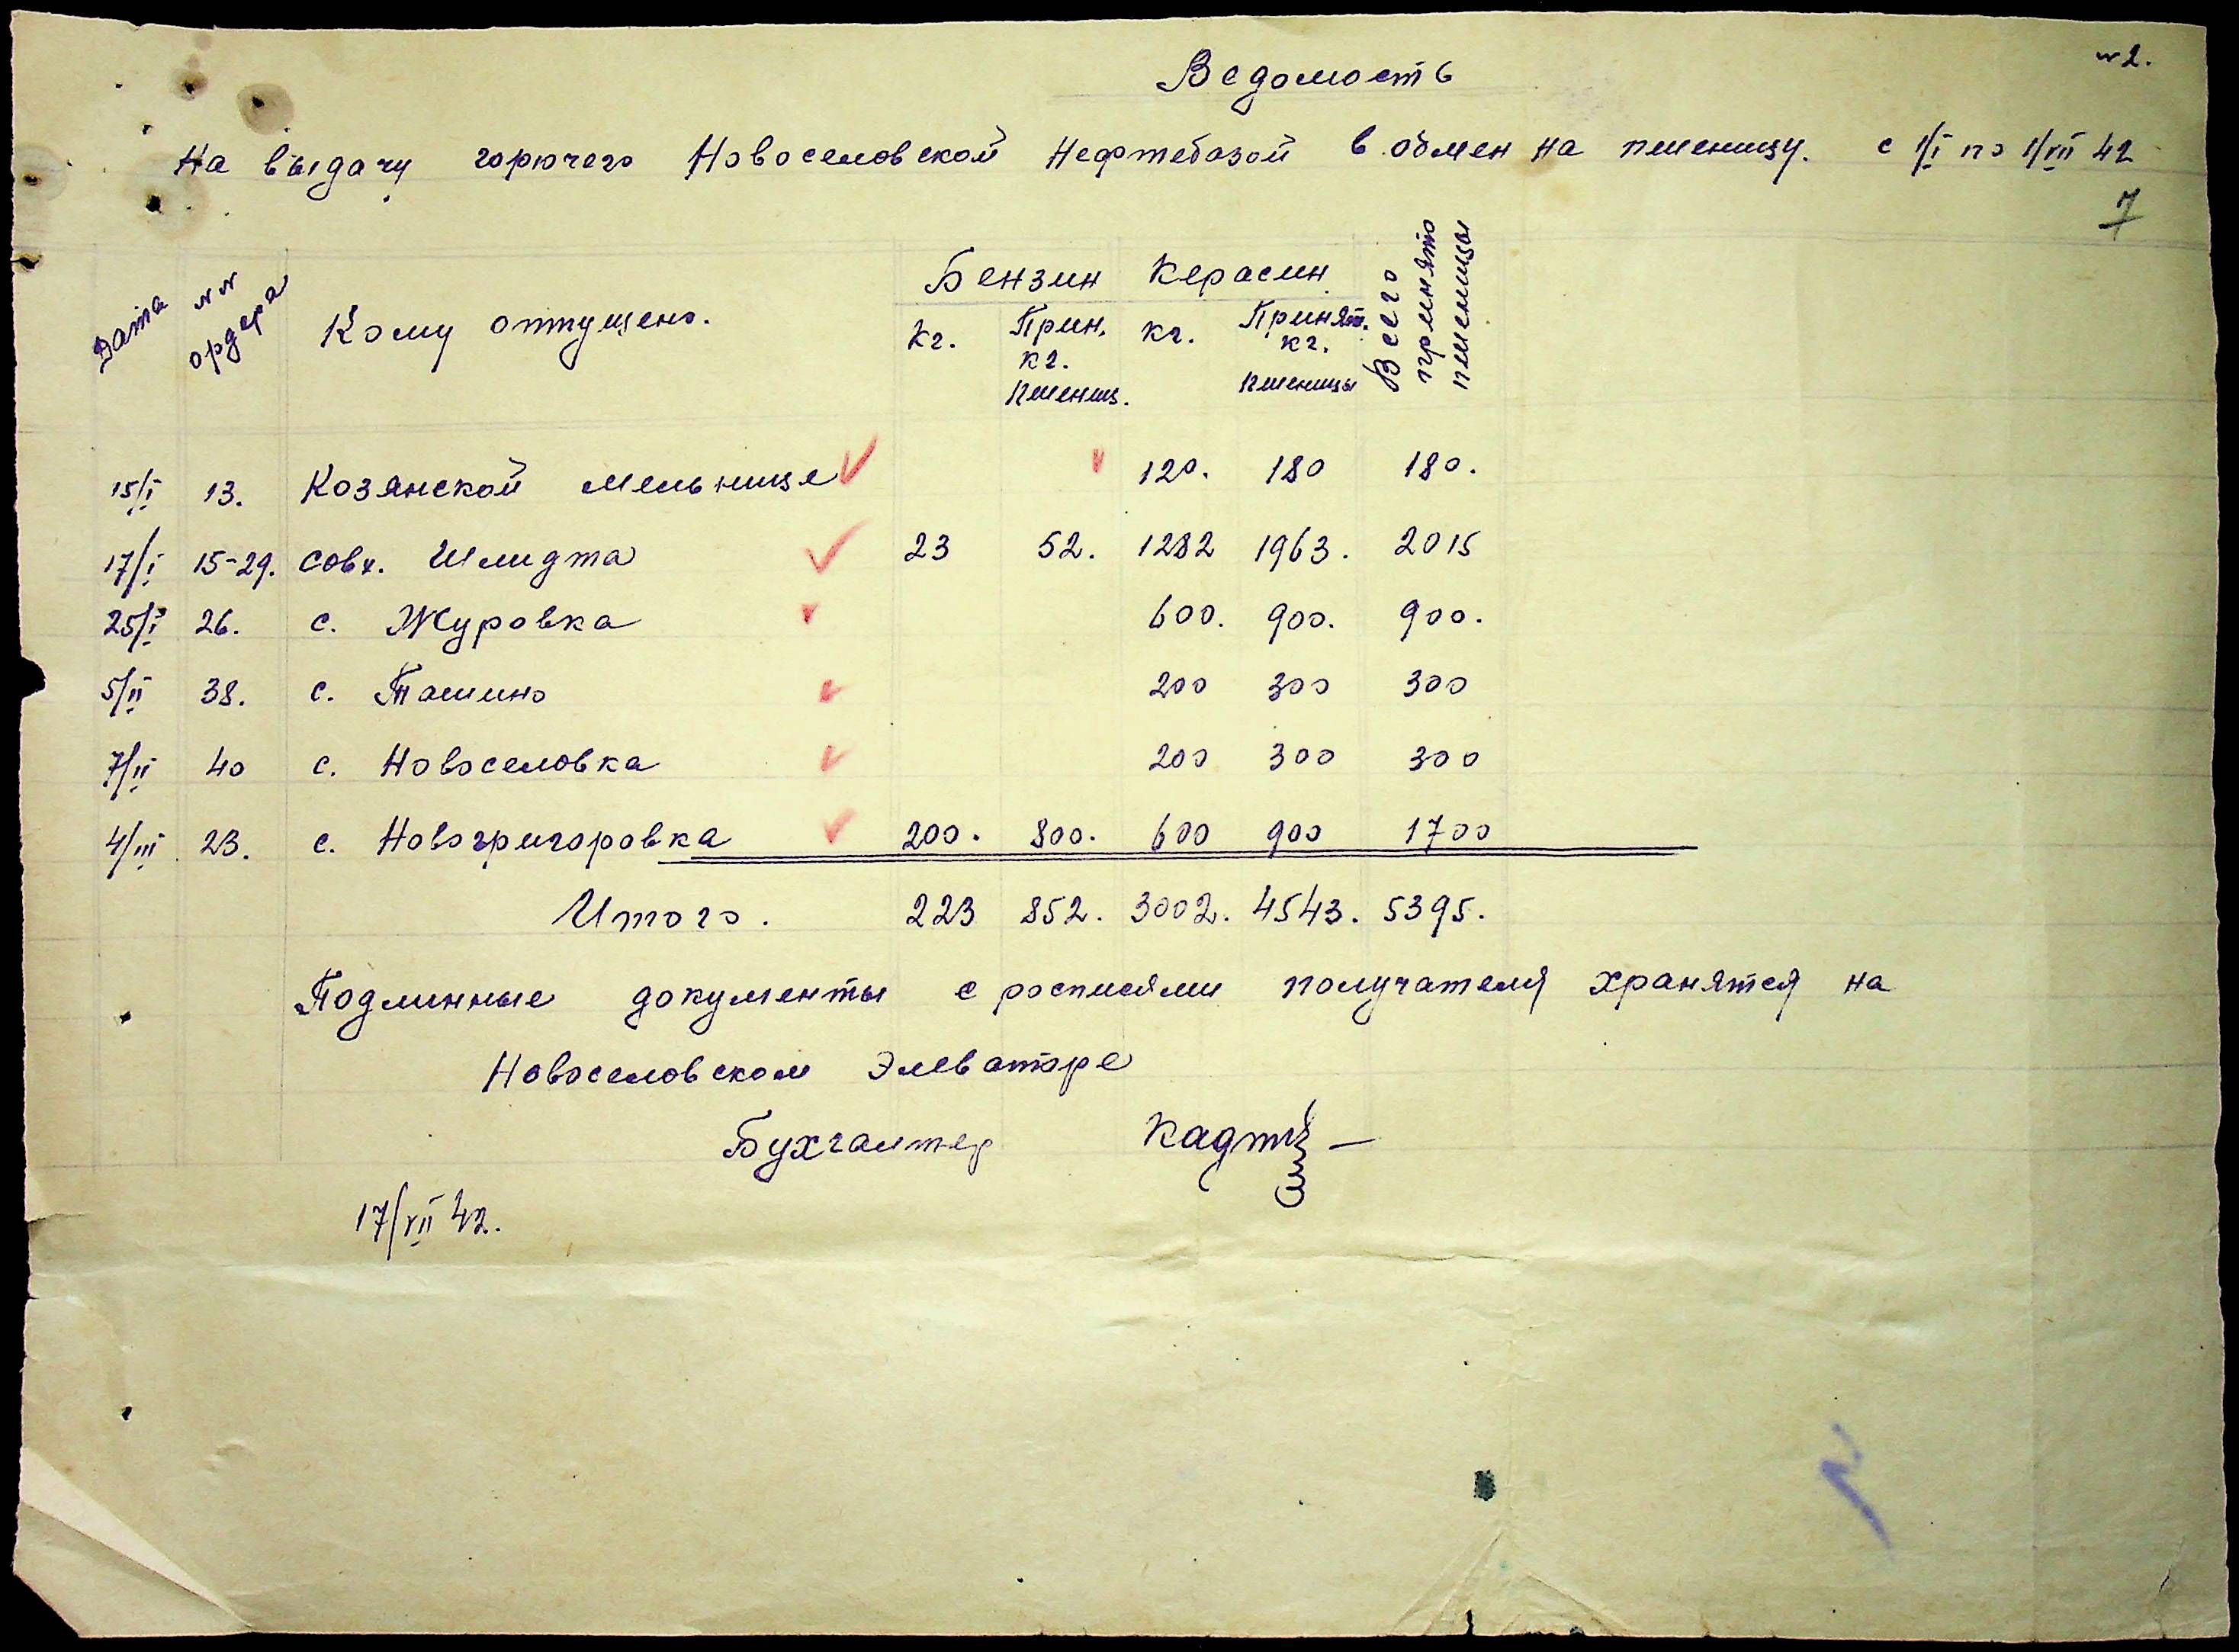 №2.
Ведомость
На выдачу горючего Новоселовской Нефтебазой в обмен на пшеницу. с 1/I по 1/VII 42
7
Дата №№ ордера Кому отпущено. Бензин Керасин Всего принято пшеницы
кг. Прин. кг. пшениц. кг. Принят. кг. пшеницы
15/I 13. Козянской мельнице 120. 180 180.
17/I 15-29. совх. Шмидта 23 52. 1282 1963. 2015
25/I 26. с. Журовка 600. 900. 900.
5/II 38. с. Ташино 200 300 300
7/II 40 с. Новоселовка 200 300 300
4/III 23. с. Новогригоровка 200. 800. 600 900 1700
Итого. 223 852. 3002. 4543. 5395.
Подлинные документы с росписями получателя хранятся на
Новоселовском Элеваторе
Бухгалтер
17/VII 42.